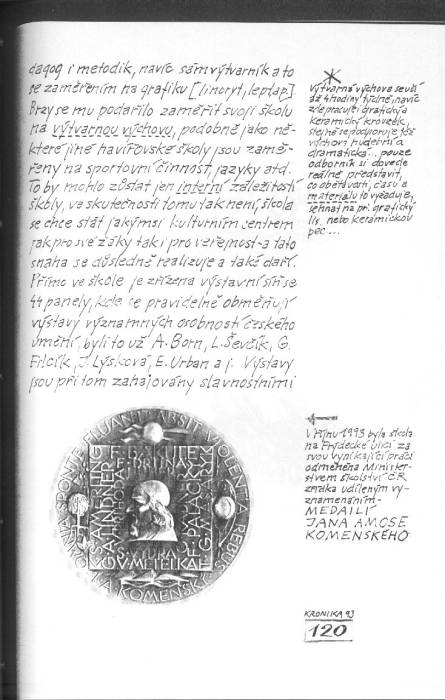 dagog i metodik, navíc sám výtvarník a to
se zaměřením na grafiku [linoryt, leptap].
Brzy se mu podařilo zaměřit svoji školu
na výtvarnou výchovu, podobně jako ně-
které jiné havířovské školy jsou zamě-
řeny na sportovní činnost, jazyky atd.
To by mohlo zůstat jen interní záležitostí
školy, ve skutečnosti tomu tak není, škola
se chce stát jakýmsi kulturním centrem
jak pro své žáky tak i pro veřejnost - a tato
snaha se důsledně realizuje a také daří.
Přímo ve škole je zřízena výstavní síň se
44 panely, kde se pravidelně obměňují
výstavy významných osobností českého
umění, byli to už A. Born, L. Ševčík, G.
Filcík, J. Lysková, E. Urban a j. Výstavy
jsou při tom zahajovány slavnostními
Výtvarná výchova se učí
až 4 hodiny týdně, navíc
zde pracující grafický a
keramický kroužek,
stejně se podporuje též
výchovu hudební a
dramatická... pouze
odborník si dovede
reálně představit,
co obětavosti, času a
materiálu to vyžaduje,
sehnat na př. grafický
lis, nebo keramickou
pec...
V říjnu 1993 byla škola
na Frýdecké ulici za
svou vynikající práci
odměněna Minister-
stvem školství ČR
udílením vy-
znamenáním -
MEDAILÍ
JANA AMOSE
KOMENSKÉHO
SPONTE FLUANT ABSIT VIOLENTIA REBUS
KOMENSKÝ
F. BAKULE
DRTINA
LINDNER
PALACKÝ
METELKA
KRONIKA 93
120